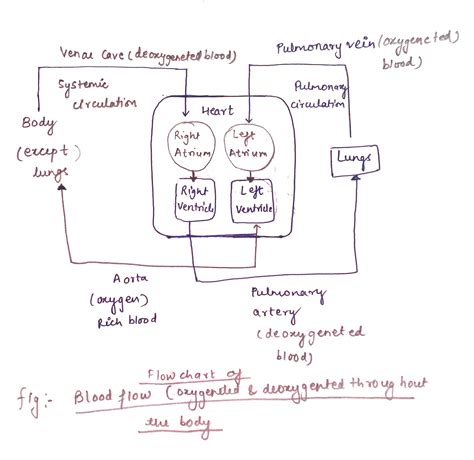 Venae Cave (deoxygeneted blood)
Pulmonary vein (oxygeneted
blood)
Systemic
circulation
Pulmonary
circulation
Heart
Body
(except)
lungs
Right
Atrium
Left
Atrium
Lungs
Right
Ventricle
Left
Ventricle
Aorta
(oxygen)
Rich blood
Pulmonary
artery
(deoxygeneted
blood)
Flowchart of
fig:- Blood flow (oxygeneted & deoxygented throughout
the body